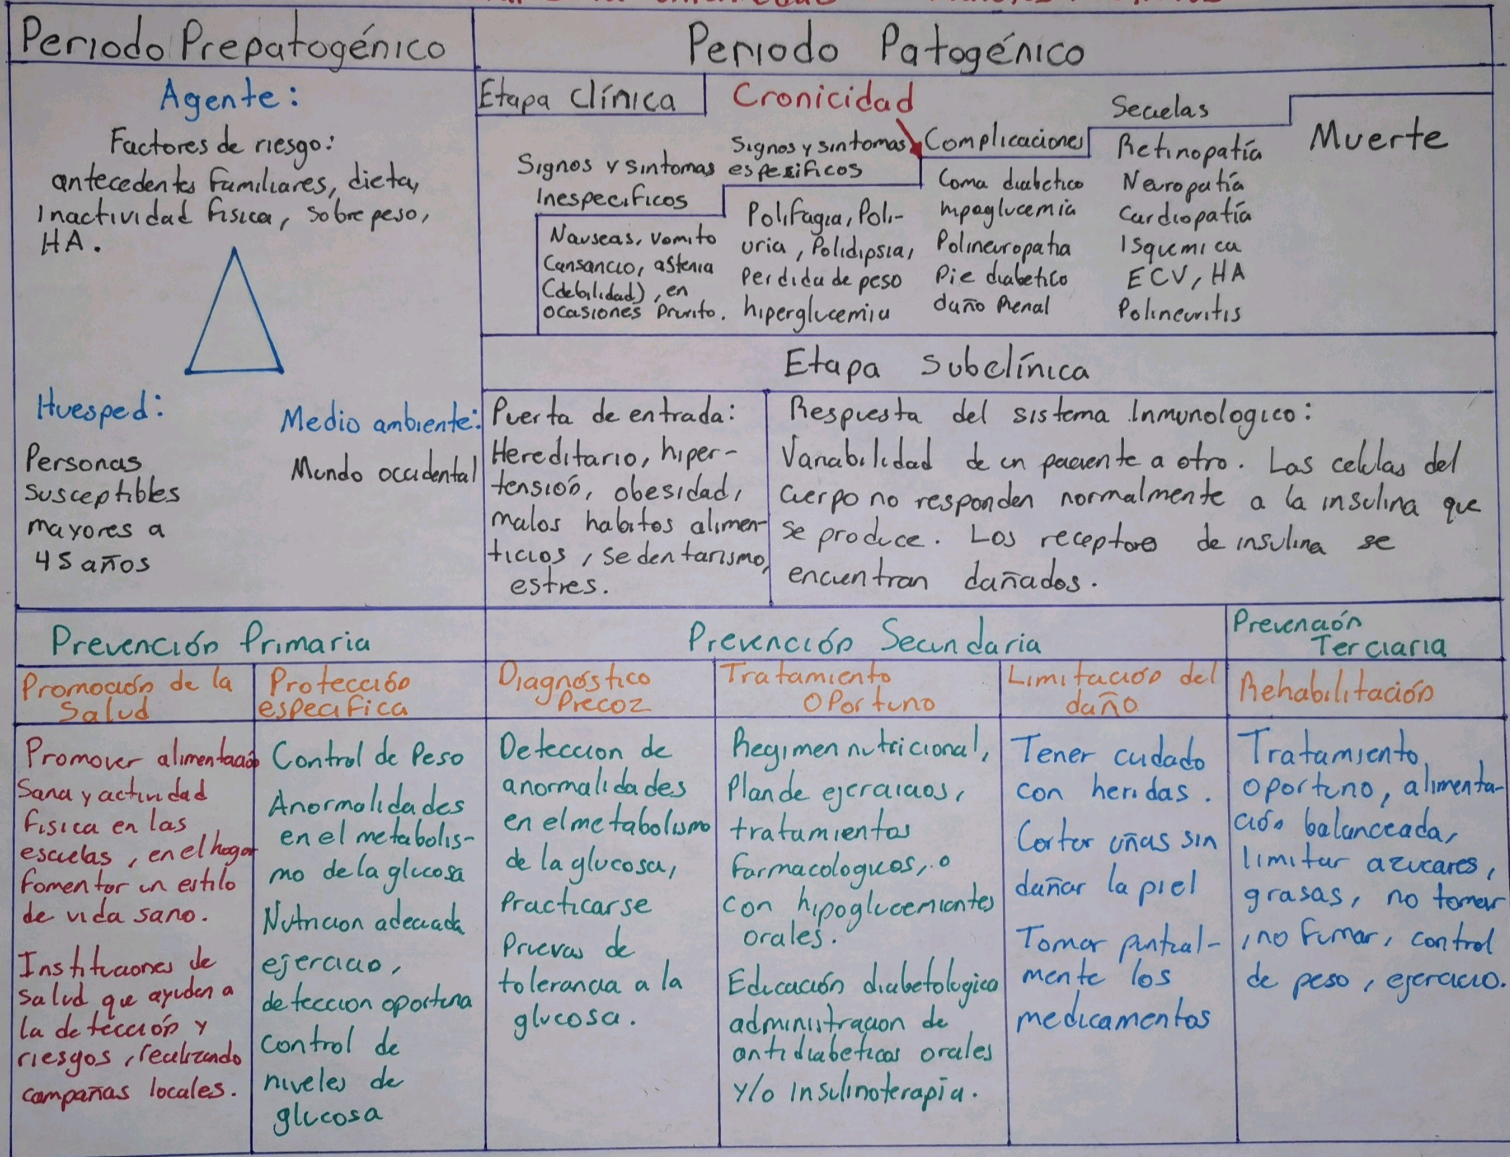 Periodo Prepatogénico
Periodo Patogénico
Agente:
Factores de riesgo:
antecedentes Familiares, dieta,
Inactividad fisica, sobre peso,
HA.
Huesped:
Personas
susceptibles
mayores a
45 años
Medio ambiente:
Mundo occidental
Etapa Clínica
Cronicidad
Signos y sintomas
Inespecificos
Nauseas, vomito
Cansancio, astenia
(debilidad), en
ocasiones prurito.
Signos y sintomas
espesificos
Polifagia, Poli-
uria, Polidipsia,
Perdida de peso
hiperglucemia
Complicaciones
Coma diabetico
Polineuropatia
Pie diabetico
daño Renal
Secuelas
Retinopatía
Neuropatía
Cardiopatía
Isquemica
ECV, HA
Polineuritis
Muerte
Etapa Subclínica
Puerta de entrada:
Hereditario, hiper-
tensión, obesidad,
malos habitos alimen-
ticios, sedentarismo,
estres.
Respuesta del sistema Inmunologico:
Variabilidad de un paciente a otro. Las celulas del
cuerpo no responden normalmente a la insulina que
se produce. Los receptores de insulina se
encuentran dañados.
Prevención Primaria
Prevención Secundaria
Prevención
Terciaria
Promoción de la
Salud
Protección
especifica
Diagnóstico
Precoz
Tratamiento
Oportuno
Limitación del
daño
Rehabilitación
Promover alimentación
Sana y actividad
Fisica en las
escuelas, en el hogar
Fomentar un estilo
de vida sano.
Instituciones de
salud que ayuden a
la detección y
riesgos, realizando
campañas locales.
Control de Peso
Anormalidades
en el metabolis-
mo de la glucosa
Nutricion adecuada
ejercicio,
deteccion oportuna
Control de
niveles de
glucosa
Deteccion de
anormalidades
en el metabolismo
de la glucosa,
Practicarse
Pruevas de
tolerancia a la
glucosa.
Regimen nutricional,
Plan de ejercicios,
tratamientos
farmacologicos, o
con hipoglucemiantes
orales.
Educación diabetologica
administracion de
antidiabeticos orales
y/o insulinoterapia.
Tener cuidado
con heridas.
Cortar uñas sin
dañar la piel
Tomar puntual-
mente los
medicamentos
Tratamiento
oportuno, alimenta-
ción balanceada,
limitar azucares,
grasas, no tomar
, no fumar, control
de peso, ejercicio.